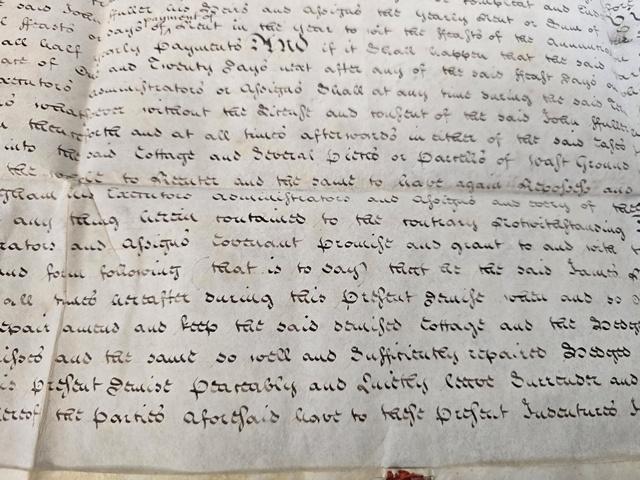 said John Fuller his Heirs and Assigns the yearly Rent or Sum of
payment of
ll Feasts or Days of Rent in the Year to wit the Feasts of the Annunciation
all half yearly payments And if it shall happen that the said
are of One and Twenty Days next after any of the said Feast Days
xecutors Administrators or Assigns Shall at any time during the said
s whatsoever without the License and consent of the said John Fuller
thenceforth and at all times afterwards in either of the said Cases
into the said Cottage and Several Pieces or Parcells of Wast Ground
the whole to Reenter and the same to have again Repossess and
gham his Executors Administrators and Assigns and every of them
any thing herein contained to the contrary Notwithstanding
rators and Assigns Covenant Promise and grant to and with
and form following that is to say that he the said James
all times hereafter during this Present Demise when and so
epair amend and keep the said demised Cottage and the Hedges
ises and the same so well and Sufficiently repaired Hedged
is Present Demise Peaceably and Quietly leave Surrender and
ereof the Parties aforesaid have to these Present Indentures